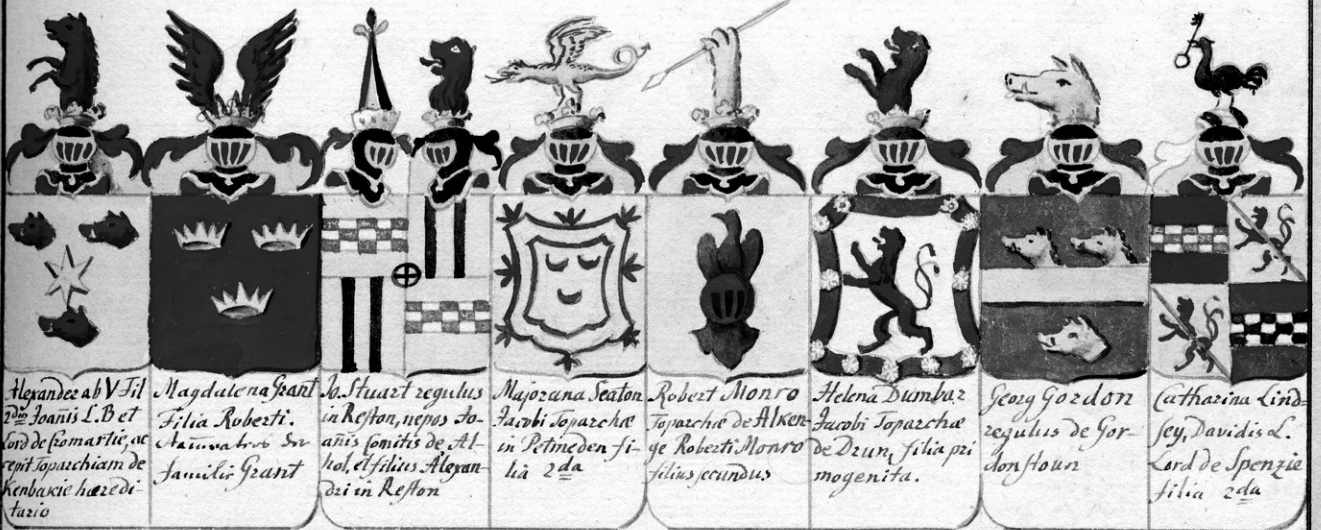 Alexander ab V Fil
2dus Joañis L. B et
Lord de Cromartie, ac
cepit Toparchiam de
Kenbakie hæredi-
tario
Magdalena Grant
Filia Roberti.
familie Grant
Jo. Stuart regulus
in Reston, nepos Jo-
anis Comitis de At-
hol, et filius Alexan-
dri in Reston
Majorana Seaton
Jacobi Toparchæ
in Petmeden fi-
lia 2da
Robert Monro
Toparchæ de Alken-
ge Roberti Monro
filius secundus
Helena Dumbar
Jacobi Toparchæ
de Drun, filia pri
mogenita.
Georg Gordon
regulus de Gor-
donstoun
Catharina Lind=
sey, Davidis L.
Lord de Spenzie
filia 2da